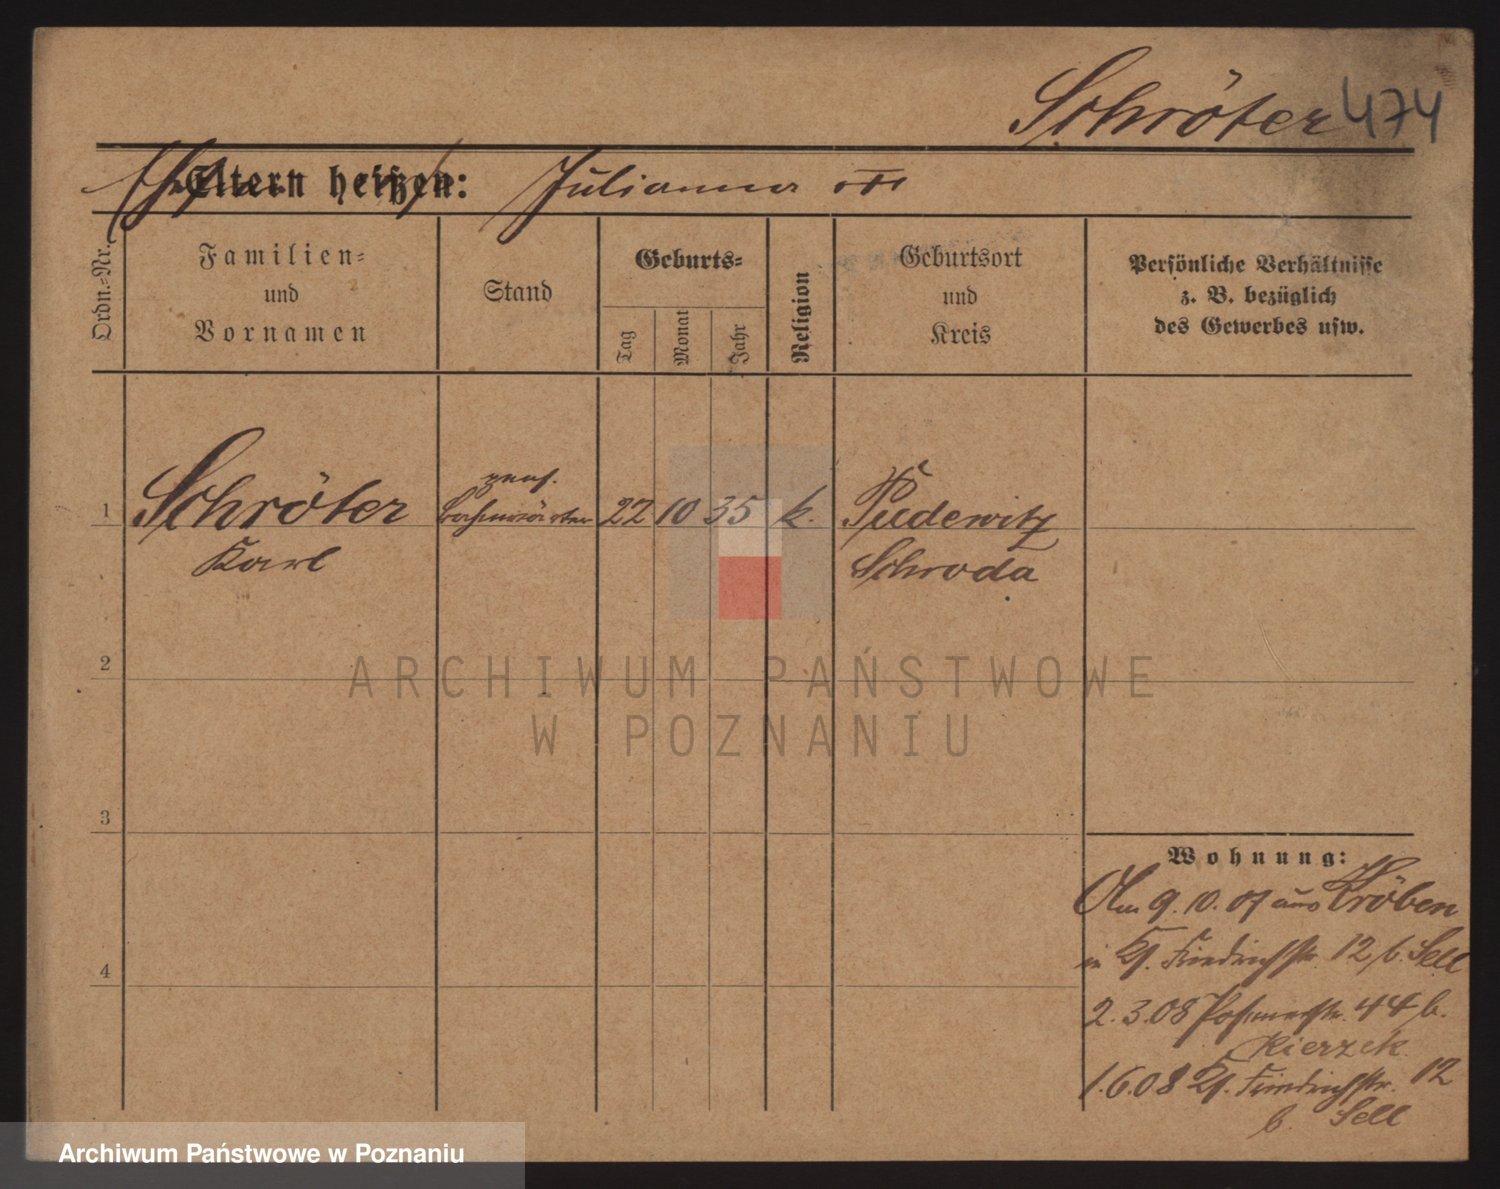 Schröter 474
Eltern heißen: Julianna
Ordn.-Nr.
Familien-
und
Vornamen
Stand
Geburts-
Tag
Monat
Jahr
Religion
Geburtsort
und
Kreis
Persönliche Verhältnisse
z. B. bezüglich
des Gewerbes usw.
pens.
1 Schröter Bahnwärter 22 10 35 k. Pudewitz
Karl Schroda
2
ARCHIWUM PAŃSTWOWE
W POZNANIU
3
4
Wohnung:
Am 9. 10. 07 aus Kröben
in Kl. Friedrichstr. 12 b. Sell
2. 3. 08 Posenerstr. 44 b.
Kierzek
1. 6. 08 Kl. Friedrichstr. 12
b. Sell
Archiwum Państwowe w Poznaniu